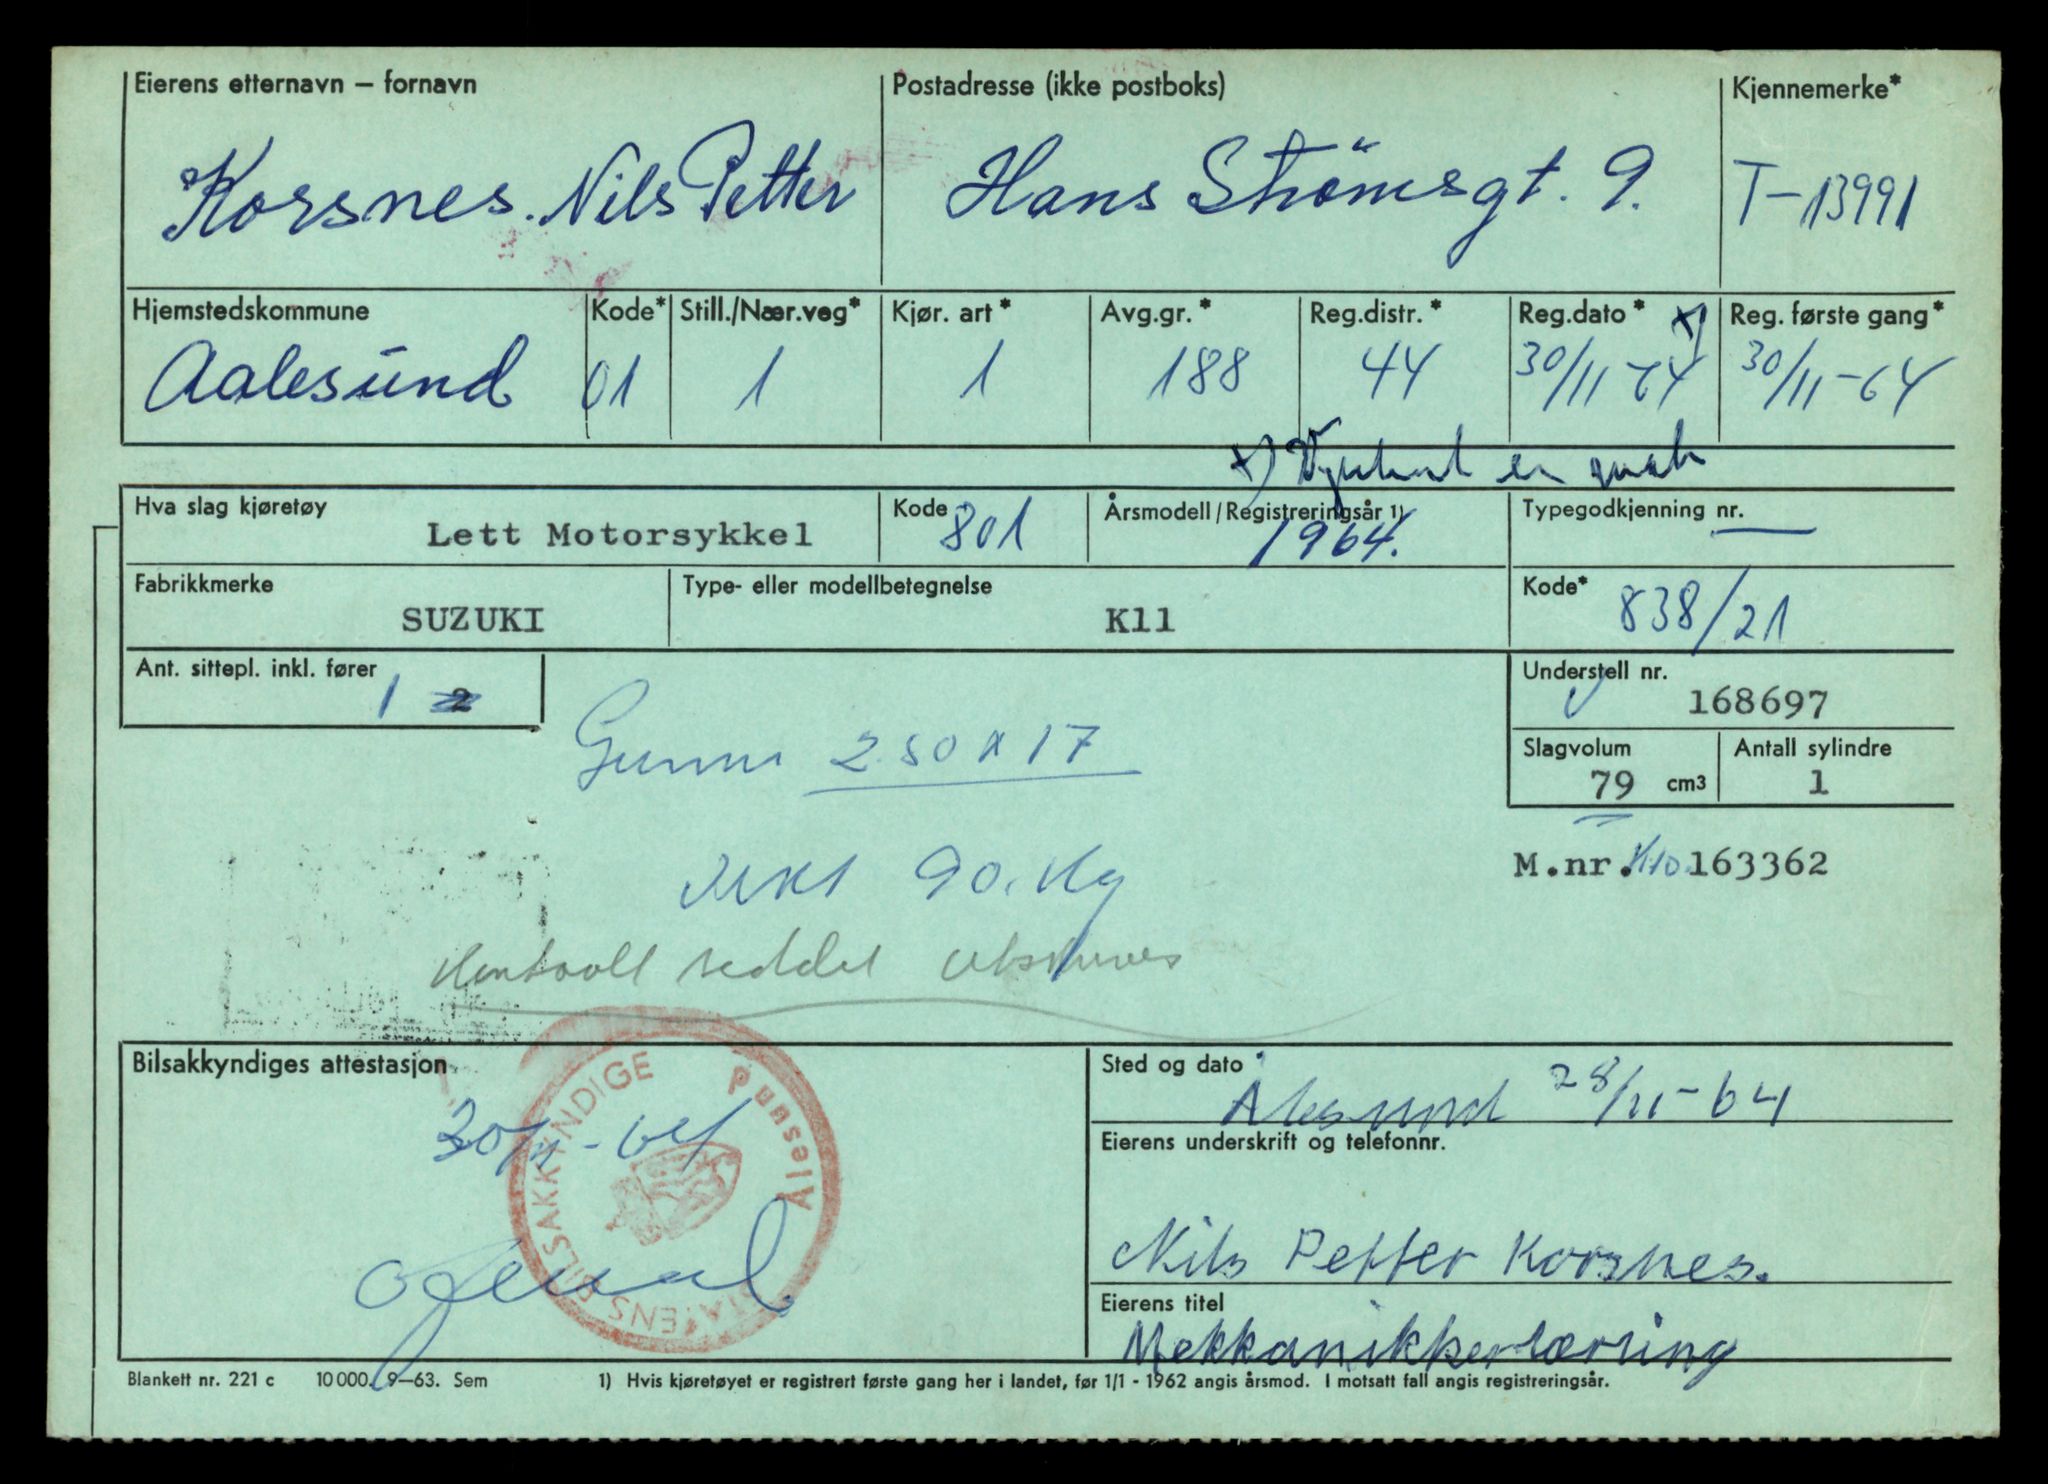 Eierens etternavn – fornavn Postadresse (ikke postboks) Kjennemerke*
Korsnes. Nils Petter Hans Strömsgt. 9. T-13991
Hjemstedskommune Kode* Still./Nær.veg* Kjør. art* Avg.gr.* Reg.distr.* Reg.dato* x) Reg. første gang*
Aalesund 01 1 1 188 44 30/11-64 30/11-64
x) en
Hva slag kjøretøy Kode Årsmodell/Registreringsår 1) Typegodkjenning nr.
Lett Motorsykkel 801 1964. —
Fabrikkmerke Type- eller modellbetegnelse Kode*
SUZUKI K11 838/21
Ant. sittepl. inkl. fører Understell nr.
1 2 168697
Gummi 2.50 x 17
Slagvolum Antall sylindre
79 cm3 1
M.nr. K10. 163362
Vekt 90. Kg
Kontroll seddel utskrives
Bilsakkyndiges attestasjon Sted og dato
30/11-64 Ålesund 28/11-64
STATENS BILSAKKYNDIGE
Eierens underskrift og telefonnr.
Nils Petter Korsnes.
Eierens titel
Mekkanikkerlærling
Blankett nr. 221 c 10 000. 9–63. Sem 1) Hvis kjøretøyet er registrert første gang her i landet, før 1/1 - 1962 angis årsmod. I motsatt fall angis registreringsår.